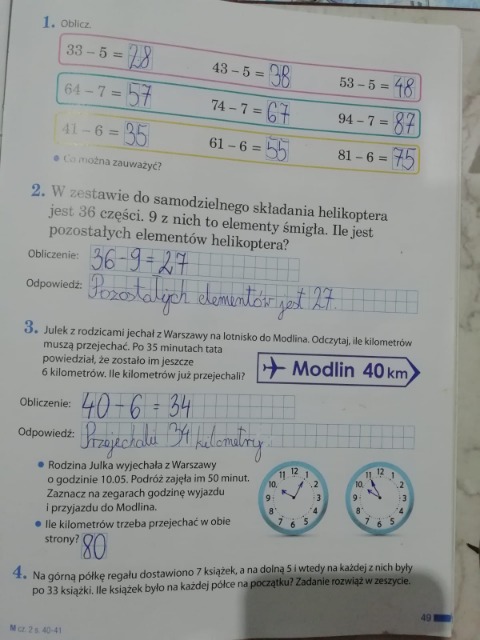 1. Oblicz.
33 – 5 = 28 43 – 5 = 38 53 – 5 = 48
64 – 7 = 57 74 – 7 = 67 94 – 7 = 87
41 – 6 = 35 61 – 6 = 55 81 – 6 = 75
• Co można zauważyć?
2. W zestawie do samodzielnego składania helikoptera
jest 36 części. 9 z nich to elementy śmigła. Ile jest
pozostałych elementów helikoptera?
Obliczenie: 36-9=27
Odpowiedź: Pozostałych elementów jest 27.
3. Julek z rodzicami jechał z Warszawy na lotnisko do Modlina. Odczytaj, ile kilometrów
muszą przejechać. Po 35 minutach tata
powiedział, że zostało im jeszcze
6 kilometrów. Ile kilometrów już przejechali?
Modlin 40 km
Obliczenie: 40-6=34
Odpowiedź: Przejechali 34 kilometry.
• Rodzina Julka wyjechała z Warszawy
o godzinie 10.05. Podróż zajęła im 50 minut.
Zaznacz na zegarach godzinę wyjazdu
i przyjazdu do Modlina.
12 1 2 3 4 5 6 7 8 9 10 11
12 1 2 3 4 5 6 7 8 9 10 11
• Ile kilometrów trzeba przejechać w obie
strony? 80
4. Na górną półkę regału dostawiono 7 książek, a na dolną 5 i wtedy na każdej z nich były
po 33 książki. Ile książek było na każdej półce na początku? Zadanie rozwiąż w zeszycie.
M cz. 2 s. 40-41
49